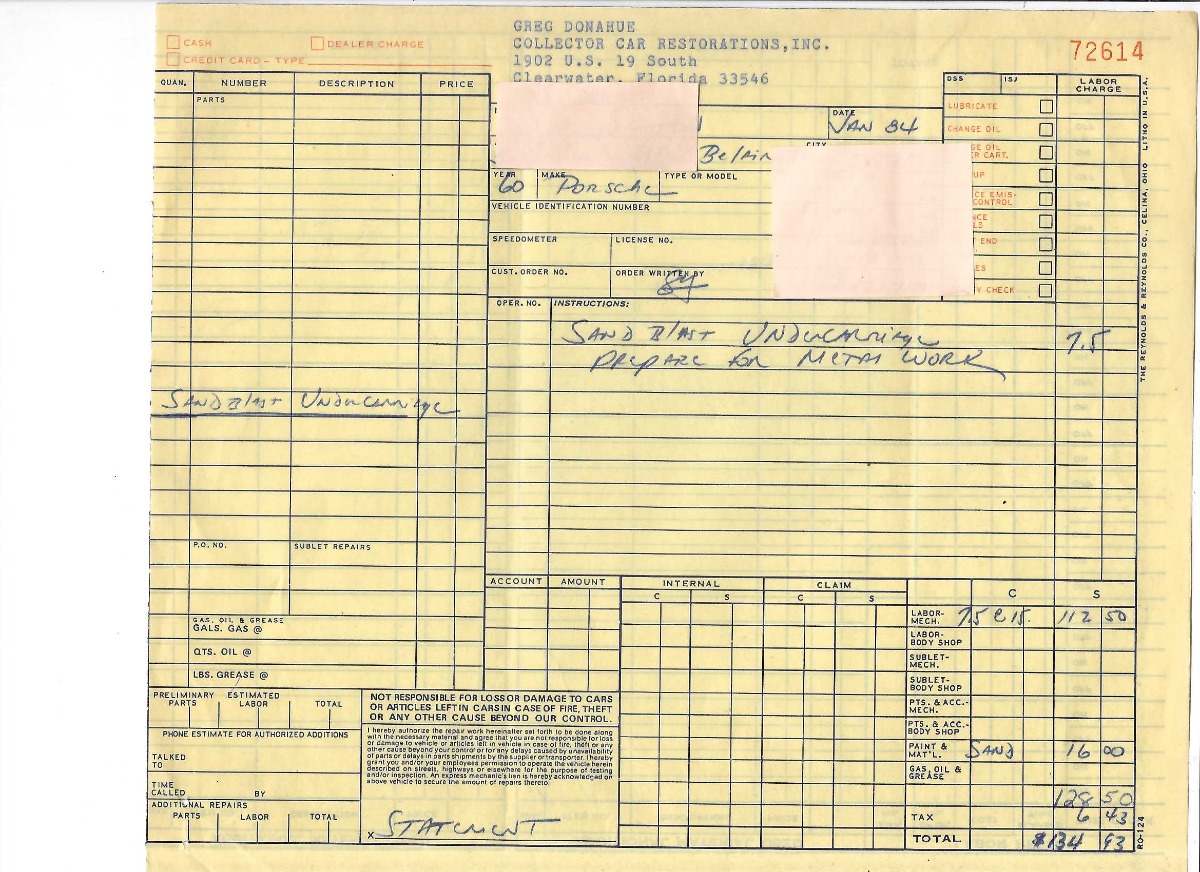 GREG DONAHUE
COLLECTOR CAR RESTORATIONS,INC.
1902 U.S. 19 South
Clearwater, Florida 33546
72614
CASH
DEALER CHARGE
CREDIT CARD - TYPE
QUAN. NUMBER DESCRIPTION PRICE
PARTS
Sandblast Undercarriage
P.O. NO. SUBLET REPAIRS
GAS, OIL & GREASE
GALS. GAS @
QTS. OIL @
LBS. GREASE @
DATE
JAN 84
CITY
Belair
YEAR MAKE TYPE OR MODEL
60 Porsche
VEHICLE IDENTIFICATION NUMBER
SPEEDOMETER LICENSE NO.
CUST. ORDER NO. ORDER WRITTEN BY
DSS ISJ LABOR CHARGE
LUBRICATE
CHANGE OIL
GE OIL
R CART.
UP
CE EMIS-
CONTROL
NCE
LS
T END
ES
Y CHECK
OPER. NO. INSTRUCTIONS:
Sand Blast Undercarriage 7.5
Prepare for Metal Work
THE REYNOLDS & REYNOLDS CO., CELINA, OHIO LITHO IN U.S.A.
ACCOUNT AMOUNT INTERNAL CLAIM
C S C S C S
LABOR-MECH. 7.5 @ 15. 112 50
LABOR-BODY SHOP
SUBLET-MECH.
SUBLET-BODY SHOP
PTS. & ACC.-MECH.
PTS. & ACC.-BODY SHOP
PAINT & MAT'L. SAND 16 00
GAS, OIL & GREASE
128 50
TAX 6 43
TOTAL $134 93
RO-124
PRELIMINARY ESTIMATED
PARTS LABOR TOTAL
PHONE ESTIMATE FOR AUTHORIZED ADDITIONS
TALKED TO
TIME CALLED BY
ADDITIONAL REPAIRS
PARTS LABOR TOTAL
NOT RESPONSIBLE FOR LOSS OR DAMAGE TO CARS
OR ARTICLES LEFT IN CARS IN CASE OF FIRE, THEFT
OR ANY OTHER CAUSE BEYOND OUR CONTROL.
I hereby authorize the repair work hereinafter set forth to be done along
with the necessary material and agree that you are not responsible for loss
or damage to vehicle or articles left in vehicle in case of fire, theft or any
other cause beyond your control or for any delays caused by unavailability
of parts or delays in parts shipments by the supplier or transporter. I hereby
grant you and/or your employees permission to operate the vehicle herein
described on streets, highways or elsewhere for the purpose of testing
and/or inspection. An express mechanic's lien is hereby acknowledged on
above vehicle to secure the amount of repairs thereto.
X STATEMENT